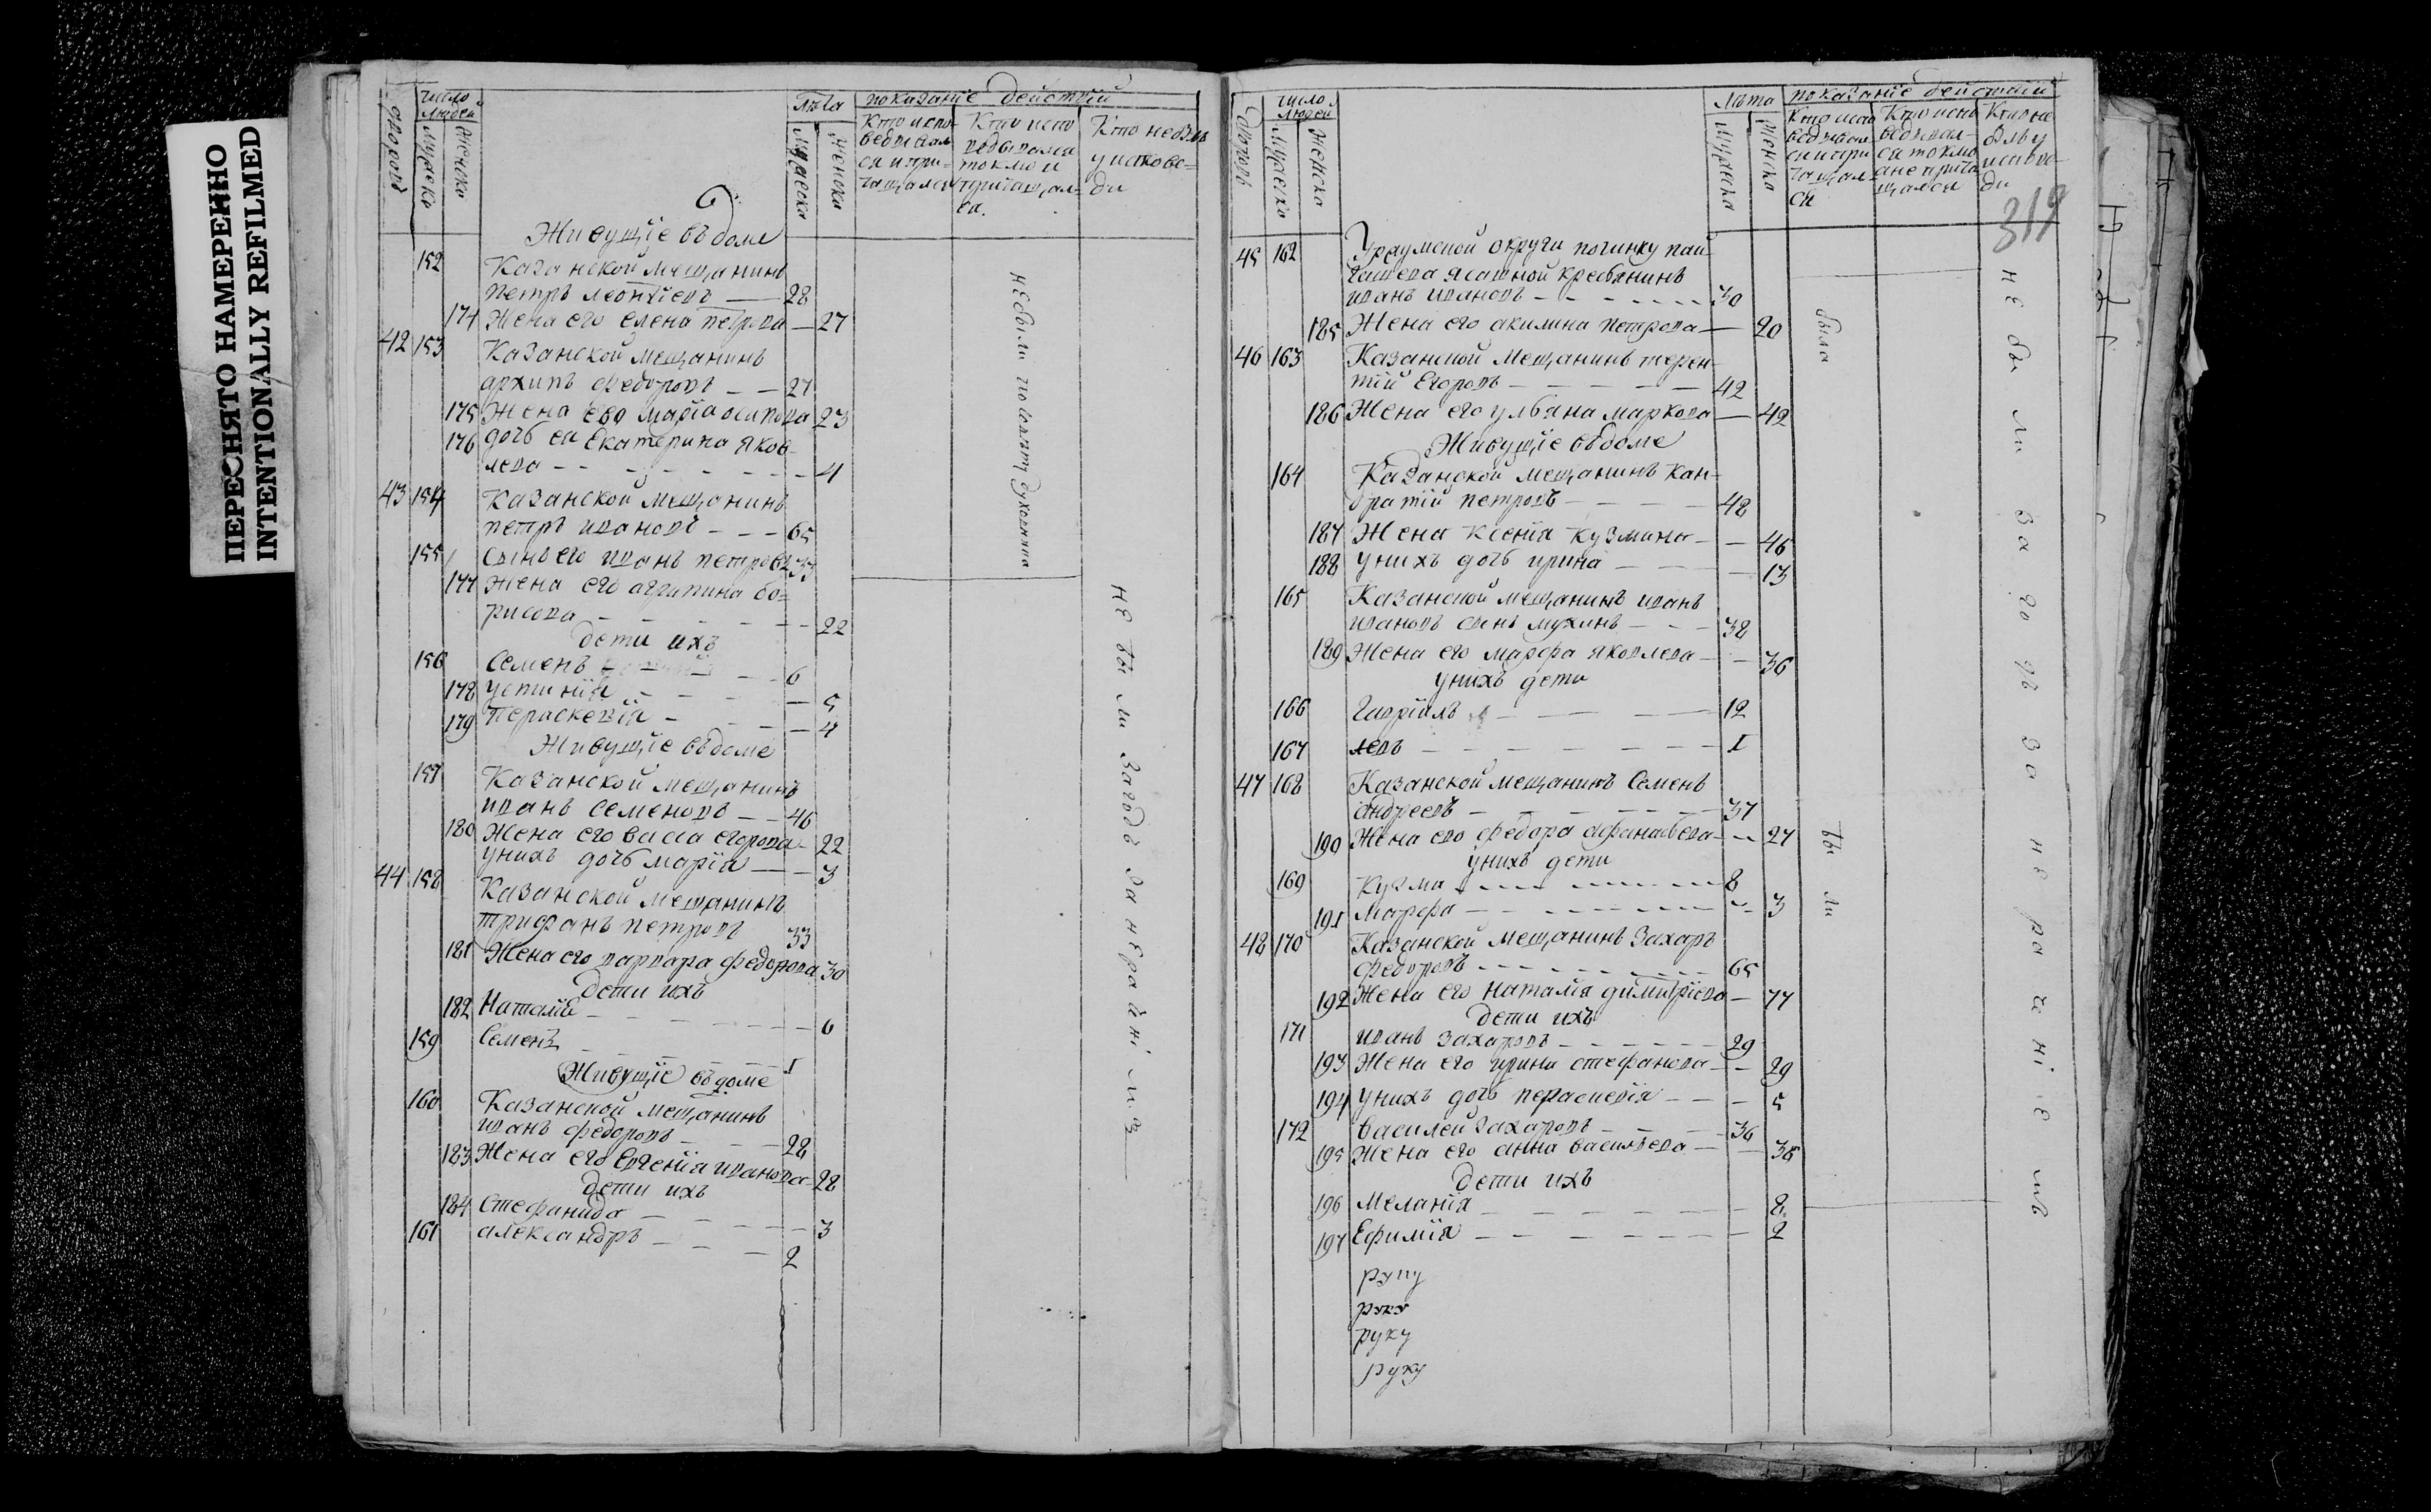 ПЕРЕСНЯТО НАМЕРЕННО
INTENTIONALLY REFILMED
дворовъ
число людей
Мужеска
Женска
Лѣта
Мужеска
Женска
показанїе действїй
Кто испо-
ведывал
ся и при-
чащался
Кто испо
ведывался
токмо и
причащал-
ся.
Кто небылъ
у испове=
ди
Живущїе въ доме
152 Казанской мещанинъ
петръ леонтїевъ — 28
174 Жена его елена петрова — 27
42 153 Казанской мещанинъ
архипъ федоровъ — — 27
175 Жена ево марїа осипова 23
176 дочь ея Екатерина Яков-
лева — — — 4
43 154 Казанской мещанинъ
петръ ивановъ — — — 65
155 сынъ его иванъ петровъ 33
177 жена его агрипина бо=
рисова — — 22
дети ихъ
156 Семенъ — — 6
178 устинїя — — — 5
179 Параскевїя — — — 4
Живущїе въ доме
157 Казанской мещанинъ
иванъ семеновъ — — 46
180 Жена его васса егорова — 22
унихъ дочь марїа — — 3
44 158 Казанской мещанинъ
трифанъ петровъ 33
181 Жена его варвара федорова 30
дети ихъ
182 Наталїя — — — 6
159 Семенъ — — — 1
Живущїе въ доме
160 Казанской мещанинъ
иванъ федоровъ — — 28
183 Жена его Евгенїя иванова 28
дети ихъ
184 Стефанида — — — 3
161 александръ — — — 2
не были
духовнии
не бы ли
дворовъ
число людей
Мужеска
Женска
Лѣта
Мужеска
Женска
показанїе действїй
Кто испо
ведывал
ся и при
чащал
ся
Кто испо
ведывал-
ся токмо
а не прича
щался
Кто не
былъ у
испове-
ди
319
45 162 Уржумской округи починку пай
гишева ясашной крестьянинъ
иванъ ивановъ — — — 30
185 Жена его акилина петрова — 20
46 163 Казанской Мещанинъ терен-
тїй Егоровъ — — — 42
186 Жена его ульяна маркова — 42
Живущїе въ доме
164 Казанской мещанинъ Кан-
дратїй петровъ — — — 48
187 Жена Ксенїя Кузмина — — 46
188 унихъ дочь ирина — — — 13
165 Казанской мещанинъ иванъ
ивановъ сынъ мухинъ — — — 38
189 Жена его марфа яковлева — — 36
унихъ дети
166 Гаврїилъ — — — 12
167 левъ — — — 1
47 168 Казанской мещанинъ Семенъ
андреевъ — — — 37
190 Жена ево федора афанасьева — — 27
унихъ дети
169 Кузма — — — 8
191 Марфа — — — 3
48 170 Казанской мещанинъ Захаръ
федоровъ — — — 65
192 Жена его наталїя димитрїева — 77
дети ихъ
171 иванъ захаровъ — — — 29
193 Жена его ирина стефанова — — 29
194 унихъ дочь параскевїя — — — 5
172 василей захаровъ — — — 36
195 Жена его анна васильева — — 36
дети ихъ
196 Меланїя — — — 8
197 Ефимїя — — — 2
руку
руку
руку
руку
была
бы ли
не бы ли